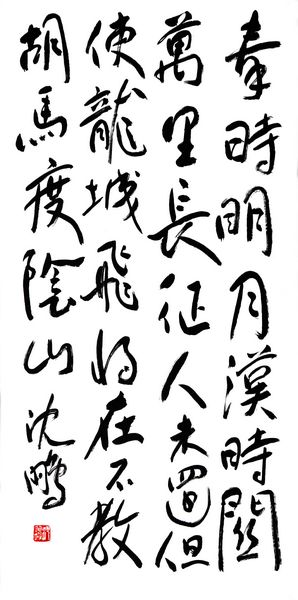 秦時明月漢時關
萬里長征人未還但
使龍城飛將在不教
胡馬度陰山
沈鵬